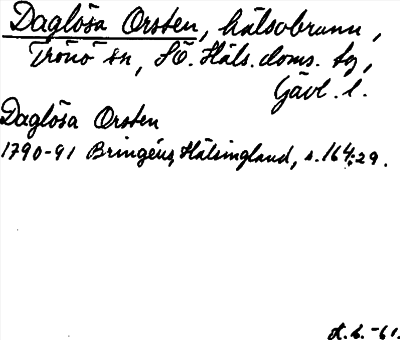 Daglösa Orsten, hälsobrunn,
Trönö sn, SÖ. Häls. doms. tg,
Gävl. l.
Daglösa Orsten
1790-91 Bringéus Hälsingland, s. 164:29.
-61.